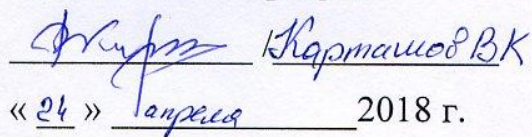 /Карташов ВК
« 24 » апреля 2018 г.